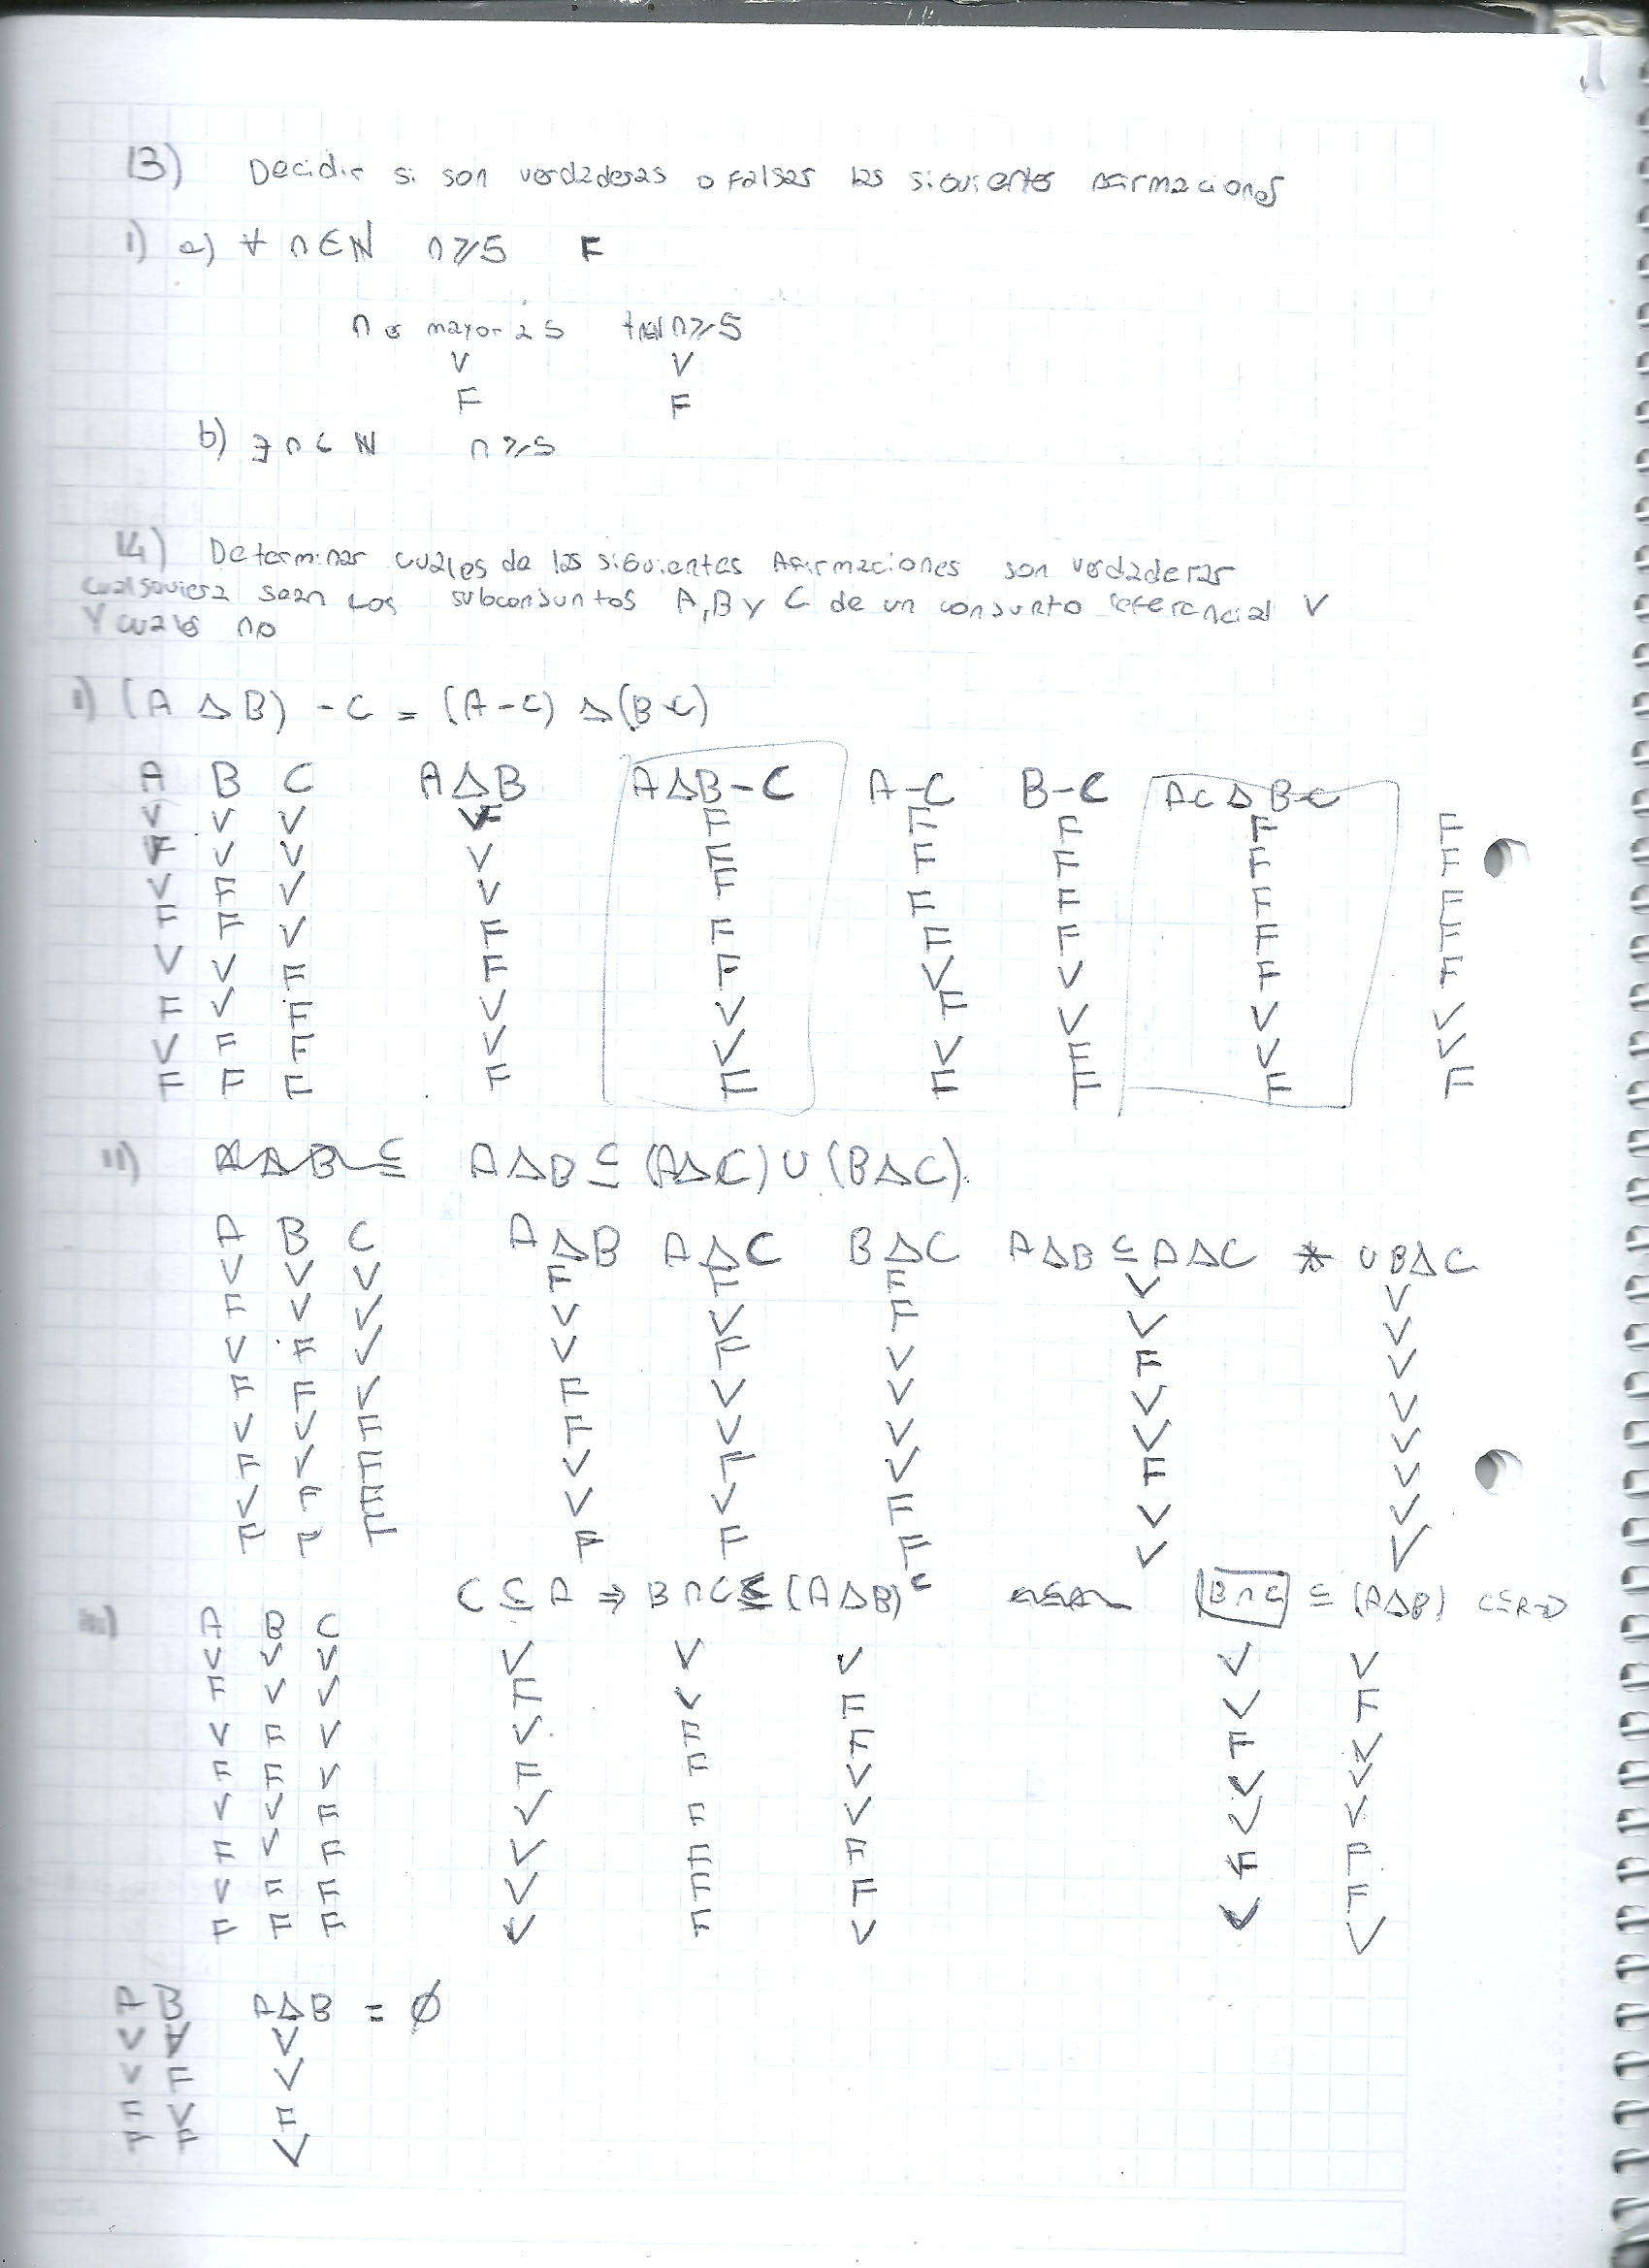 13) Decidir si son verdaderas o falsas las siguientes afirmaciones
1) a) ∀ n ∈ ℕ n ⩾ 5 F
n es mayor a 5 n ⩾ 5
V V
F F
b) ∃ n ∈ ℕ n ⩾ 5
14) Determinar cuales de las siguientes Afirmaciones son verdaderas
cualsquiera sean los subconjuntos A, B y C de un conjunto referencial V
Y cuales no
I) (A Δ B) - C = (A - C) Δ (B - C)
A B C A Δ B A Δ B - C A - C B - C A-C Δ B-C
V V V F F F F F F
F V V V F F F F F
V F V V F F F F F
F F V F F F F F F
V V F F F V V F F
F V F V V F V V V
V F F V V V F V V
F F F F F F F F F
II) A Δ B ⊆ A Δ B ⊆ (A Δ C) ∪ (B Δ C).
A B C A Δ B A Δ C B Δ C A Δ B ⊆ A Δ C * ∪ B Δ C
V V V F F F V V
F V V V V F V V
V F V V F V F V
F F V F V V V V
V V F F V V V V
F V F V F V F V
V F F V V F V V
F F F F F F V V
III) C ⊆ A ⇒ B ∩ C ⊆ (A Δ B)ᶜ B ∩ C ⊆ (A Δ B)
A B C
V V V V V V V V
F V V F V F V F
V F V V F F F V
F F V F F V V V
V V F V F V V V
F V F V F F F F
V F F V F F V F
F F F V F V V
A B A Δ B = ∅
V V V
V F V
F V F
F F V